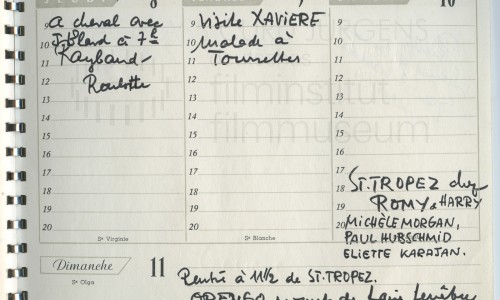 8
9
10
9 à cheval avec
10 J. Bland à 7h
11 Rayband-
12 Roulotte
13
14
15
16
17
18
19
20
Ste Virginie
9 Visite XAVIÈRE
10 malade à
11 Tourrettes
12
13
14
15
16
17
18
19
20
Ste Blanche
9
10
11
12
13
14
15
16
17 ST. TROPEZ chez
18 ROMY & HARRY
19 MICHÈLE MORGAN,
20 PAUL HUBSCHMID
ELIETTE KARAJAN.
JÜRGENS
filminstitut
filmmuseum
Dimanche 11
Ste Olga
Rentré à 11½ de ST. TROPEZ.